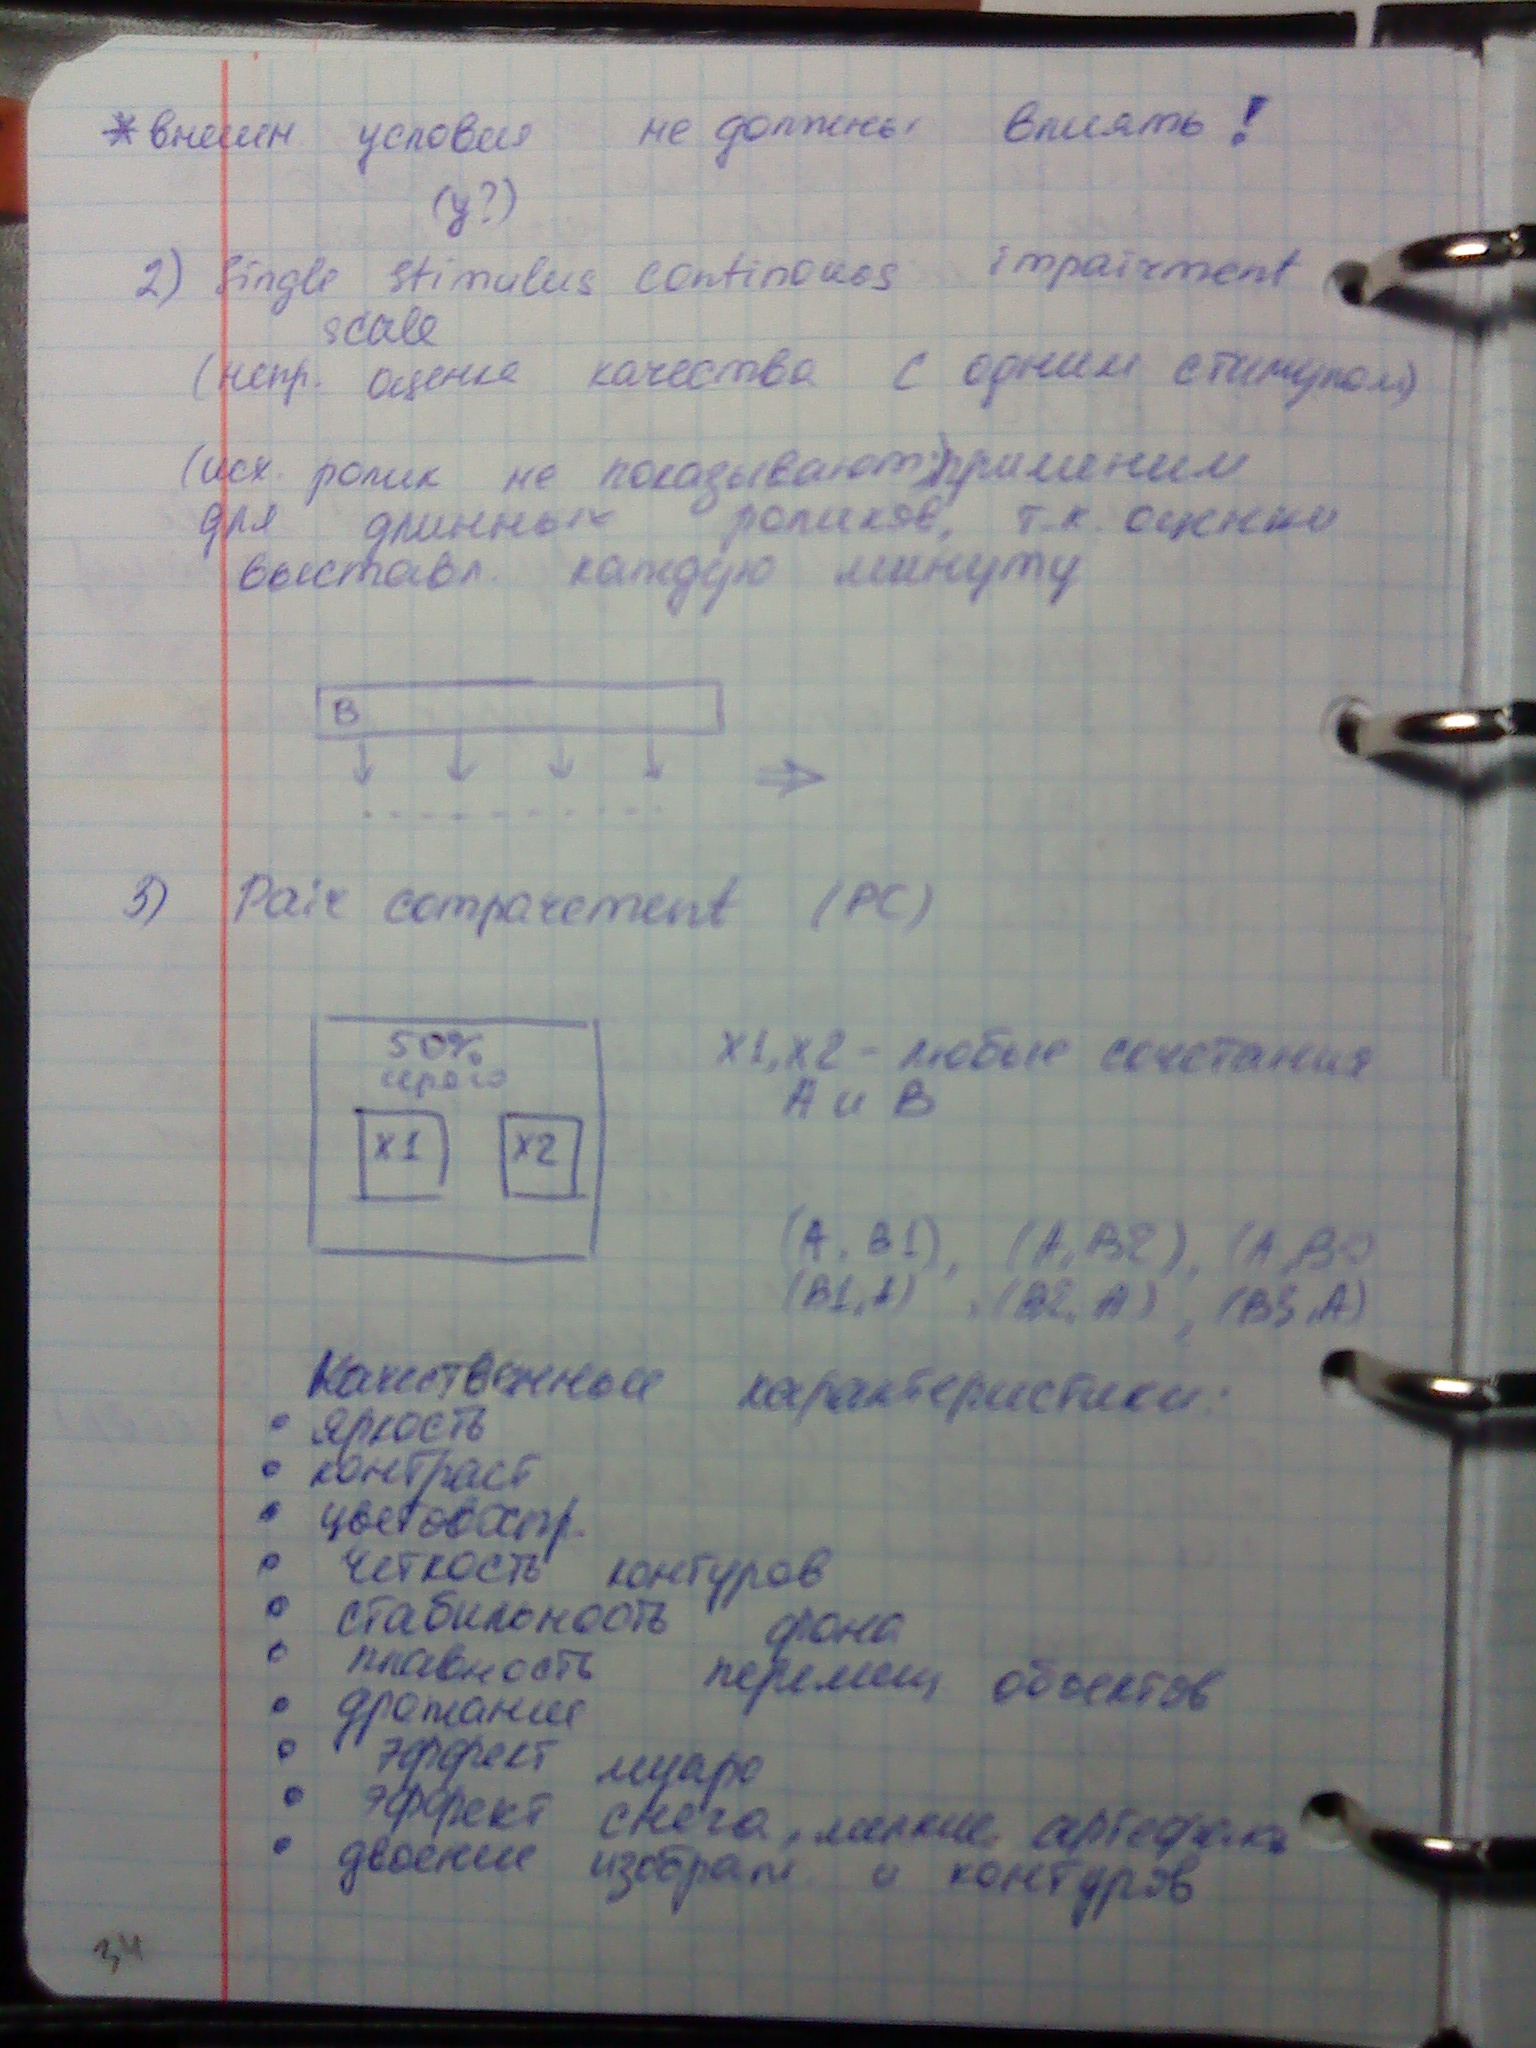 * внешн. условия не должны влиять!
(у?)
2) Single stimulus continouos impairment
scale
(непр. оценка качества с одним стимулом)
(исх. ролик не показывают) применим
для длинных роликов, т.к. оценки
выставл. каждую минуту
B
3) Pair comparement (PC)
50%
серого
X1 X2
X1, X2 - любые сочетания
A и B
(A, B1), (A, B2), (A, B3
(B1, A), (B2, A), (B3, A)
Качественные характеристики:
• яркость
• контраст
• цветовоспр.
• четкость контуров
• стабильность фона
• плавность перемещ. объектов
• дрожание
• эффект муаро
• эффект снега, мелкие артефакты
• двоение изображ. и контуров
34